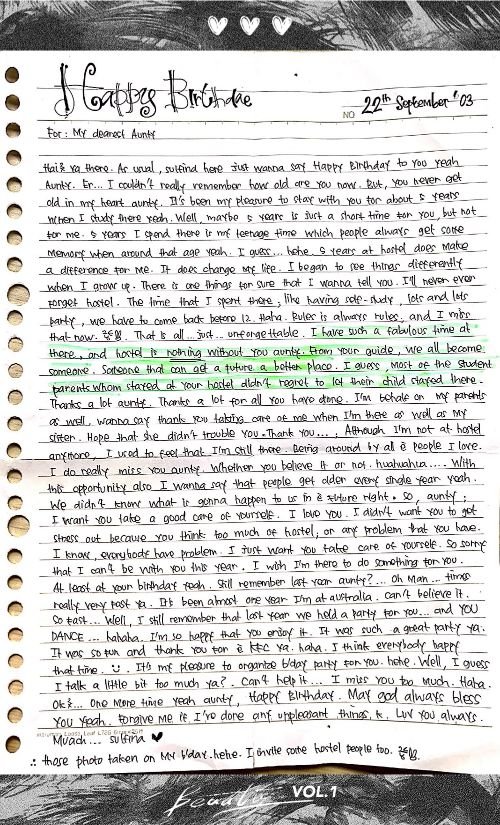 Happy Birthdae
NO 22th September '03
For: My dearest Aunty
Hai² ya there. As usual, sulfina here just wanna say Happy Birthday to you yeah
Aunty. Er... I couldn't really remember how old are you now. But, you never get
old in my heart aunty. It's been my pleasure to stay with you for about 5 years
when I study there yeah. Well, maybe 5 years is just a short time for you, but not
for me. 5 years I spend there is my teenage time which people always get some
memory when around that age yeah. I guess... hehe. 5 years at hostel does make
a difference for me. It does change my life. I began to see things differently
when I grow up. There is one things for sure that I wanna tell you. I'll never ever
forget hostel. The time that I spent there, like having self-study, lots and lots
party, we have to come back before 12. Haha. Ruler is always rules, and I miss
that now. That is all... just... unforgettable. I have such a fabulous time at
there, and hostel is nothing without you aunty. From your guide, we all become
someone. Someone that can get a future a better place. I guess, most of the student
parents whom stayed at your hostel didn't regret to let their child stayed there.
Thanks a lot aunty. Thanks a lot for all you have done. I'm behale on my parents
as well, wanna say thank you taking care of me when I'm there as well as my
sister. Hope that she didn't trouble you. Thank you..., Although I'm not at hostel
anymore, I used to feel that I'm still there. Being around by all è people I love.
I do really miss you aunty. Whether you believe it or not. huahuahua.... With
this opportunity also I wanna say that people get older every single year yeah.
We didn't know what is gonna happen to us in è future right. So, aunty;
I want you take a good care of yourself. I love you. I didn't want you to get
stress out because you think too much of hostel, or any problem that you have.
I know, everybody have problem. I just want you take care of yourself. So sorry
that I can't be with you this year. I wish I'm there to do something for you.
At least at your birthday yeah. Still remember last year aunty?... Oh Man... times
really very fast ya. It's been almost one year I'm at australia. Can't believe it.
So fast... Well, I still remember that last year we held a party for you... and YOU
DANCE... hahaha. I'm so happy that you enjoy it. It was such a great party ya.
It was so fun and thank you for è KFC ya. haha. I think everybody happy
that time. It's my pleasure to organize b'day party for you. hehe. Well, I guess
I talk a little bit too much ya? Can't help it... I miss you too much. Haha.
Ok²... One more time yeah aunty, Happy Birthday. May god always bless
You yeah. Forgive me if I've done any uppleasant things k. Luv you always.
Muach... sulfina
∴ those photo taken on my b'day. hehe. I invite some hostel people too.
VOL.1